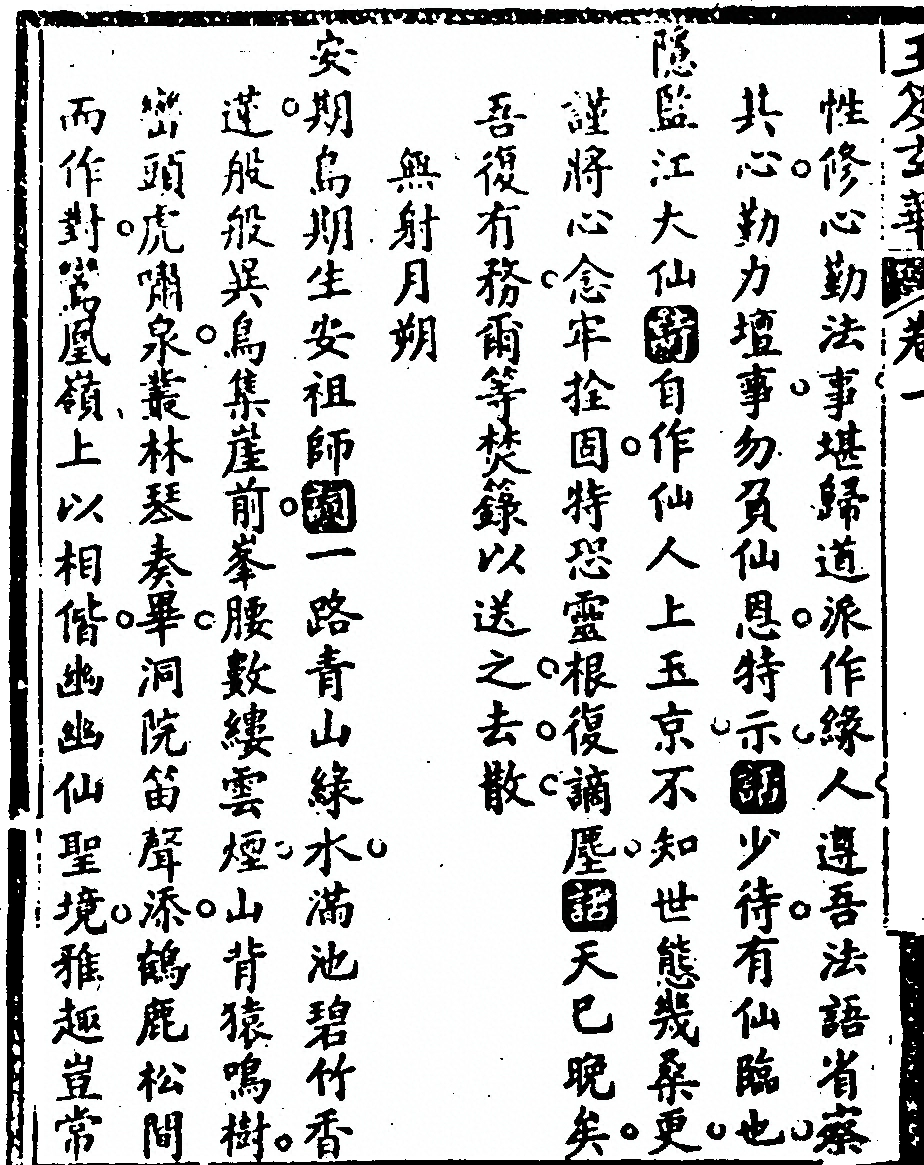 性修心勤法事堪歸道派作緣人遵吾法語省察
其心勤力壇事勿負仙恩特示少待有仙臨也
隱監江大仙詩自作仙人上玉京不知世態幾桑更
謹將心念牢拴固特恐靈根復謫塵話天已晚矣
吾復有務爾等焚籙以送之去散
無射月朔
安期烏期生安祖師詞一路青山綠水滿池碧竹香
蓮般般異鳥集崖前峯腰數縷雲煙山背猿鳴樹
巒頭虎嘯泉叢林琴奏畢洞院笛聲添鶴鹿松間
而作對鸞凰嶺上以相偕幽幽仙聖境雅趣豈常